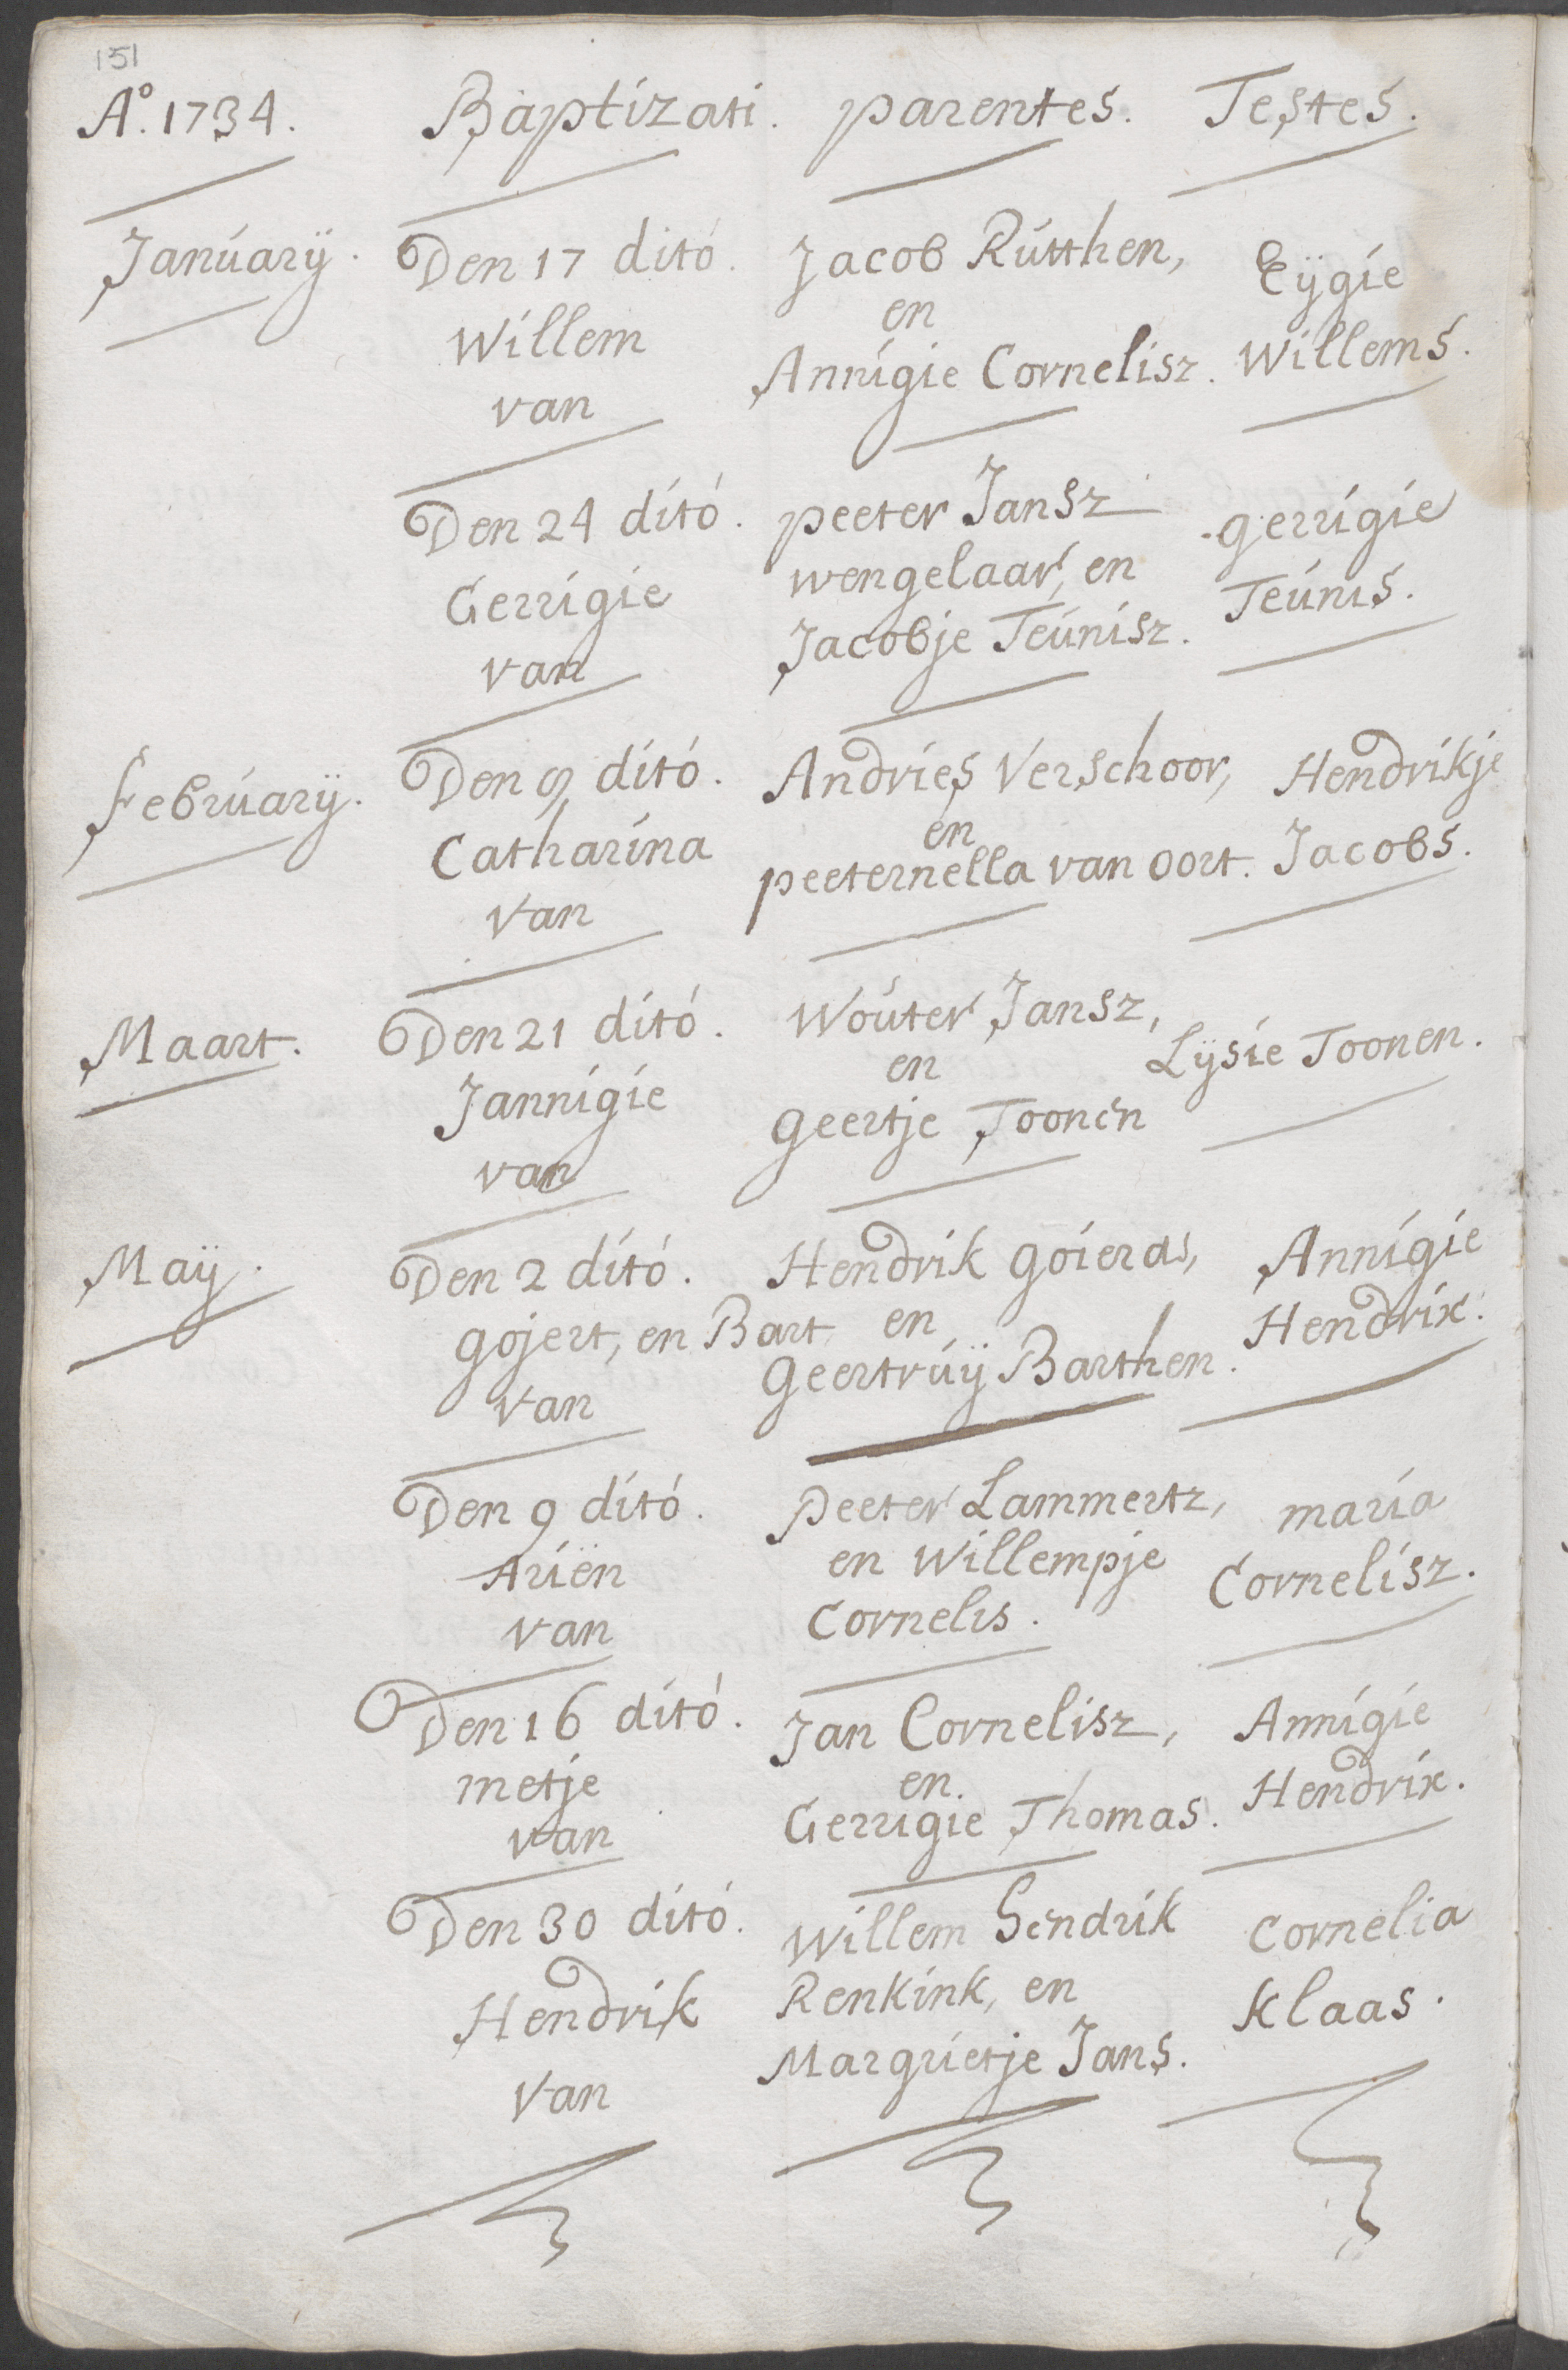 151
A.º 1734. Baptizati. parentes. Testes.
Januarÿ. Den 17 dito. Jacob Rutthen, Eÿgie
Willem en Willems.
van Annigie Cornelisz.
Den 24 dito. peeter Jansz gerrigie
Gerrigie wengelaar, en Teunis.
van Jacobje Teunisz.
Februarÿ. Den 9 dito. Andries Verschoor, Hendrikje
Catharina en Jacobs.
van peeternella van oort.
Maart. Den 21 dito. Wouter Jansz, Lÿsie Toonen.
Jannigie en
van Geertje Toonen
Maÿ. Den 2 dito. Hendrik Goierds, Annigie
gojert, en Bart en Hendrix.
van Geertruÿ Barthen.
Den 9 dito. Peeter Lammertz, maria
Ariën en Willempje Cornelisz.
van Cornelis.
Den 16 dito. Jan Cornelisz, Annigie
metje en Hendrix.
van Gerrigie Thomas.
Den 30 dito. Willem Hendrik Cornelia
Hendrik Renkink, en Klaas.
van Margrietje Jans.